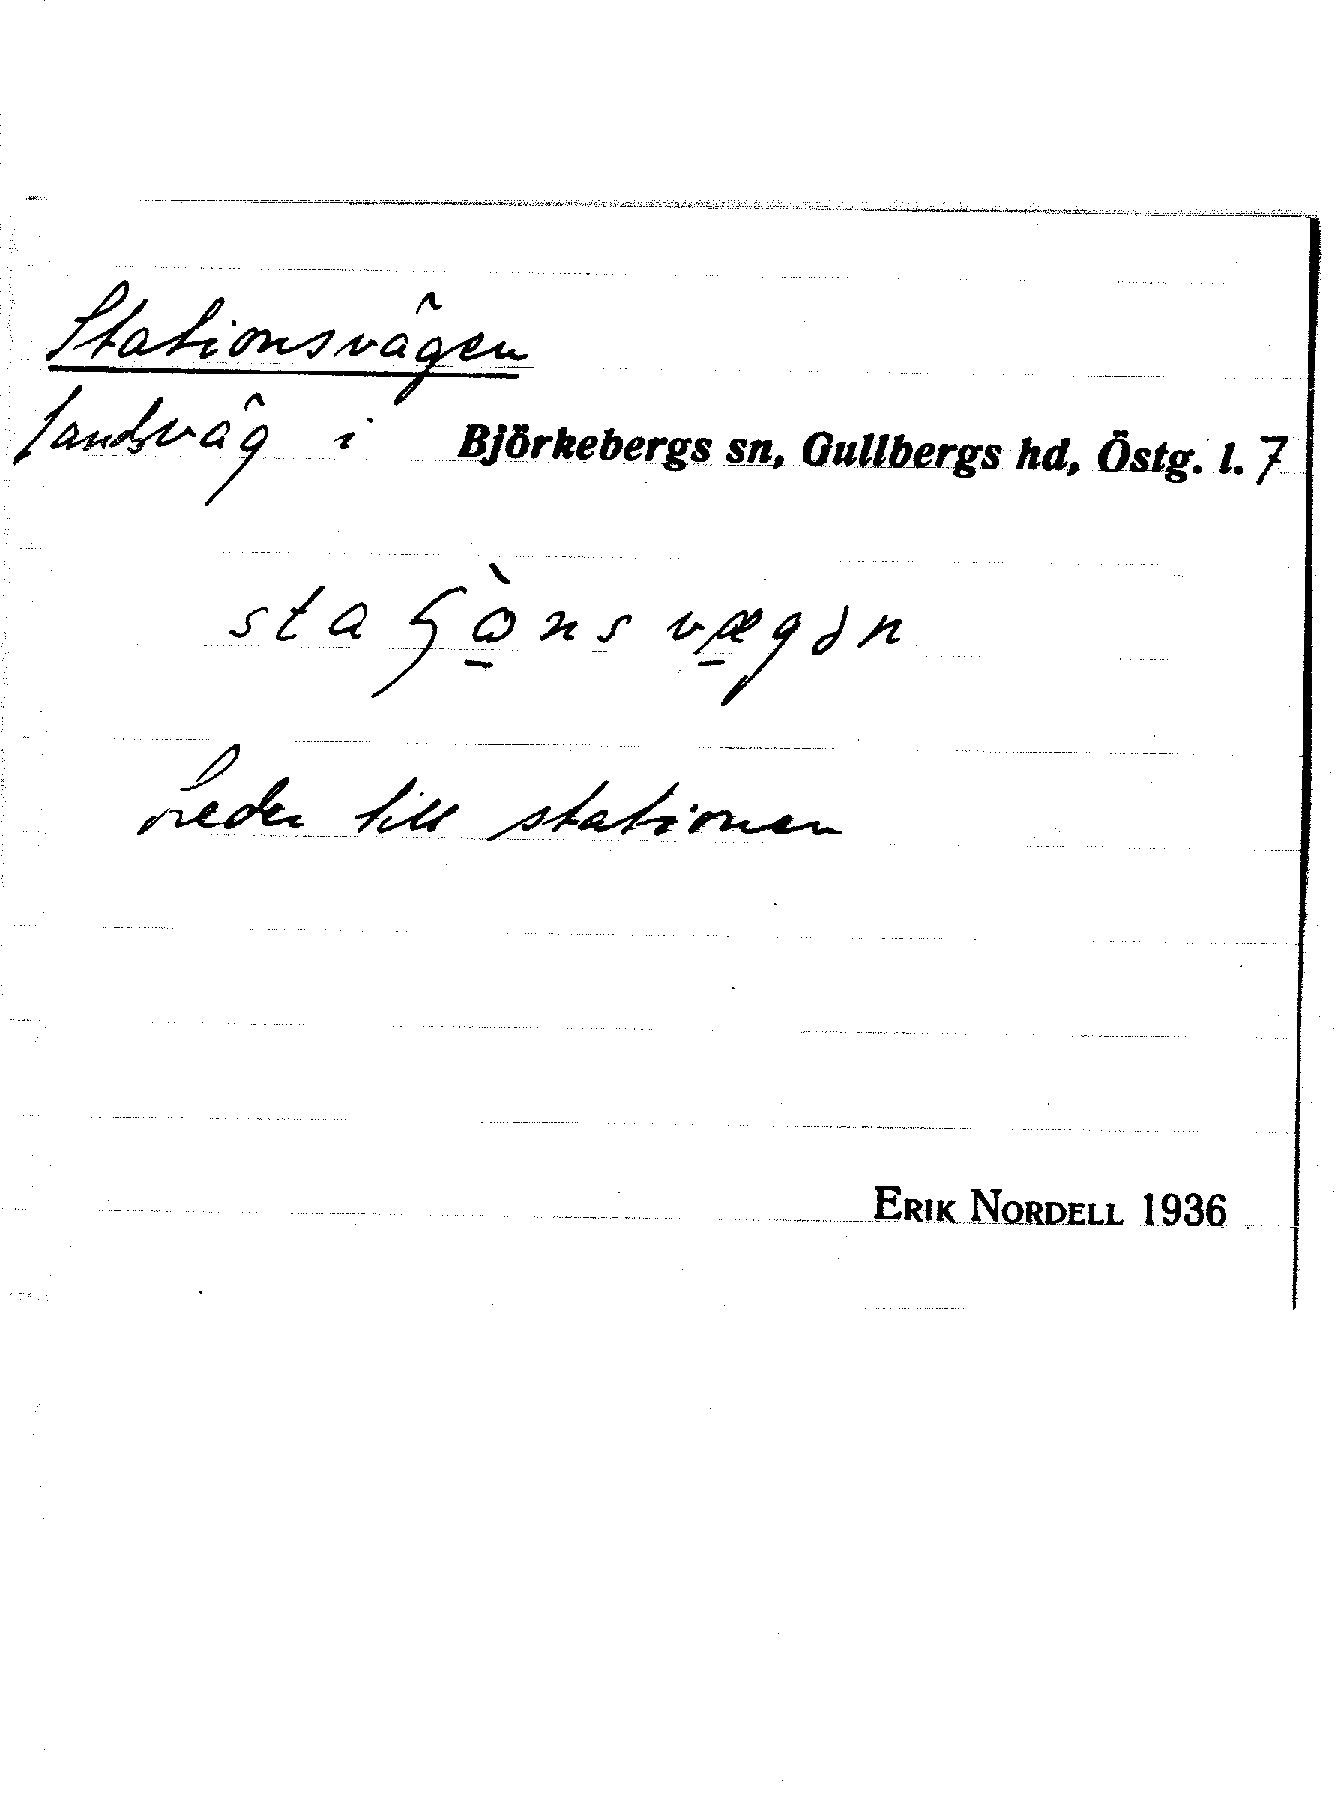 Stationsvägen
landsväg i Björkebergs sn, Gullbergs hd, Östg. l. 7
staʃò̠nsvæ̠gən
Leder till stationen
ERIK NORDELL 1936